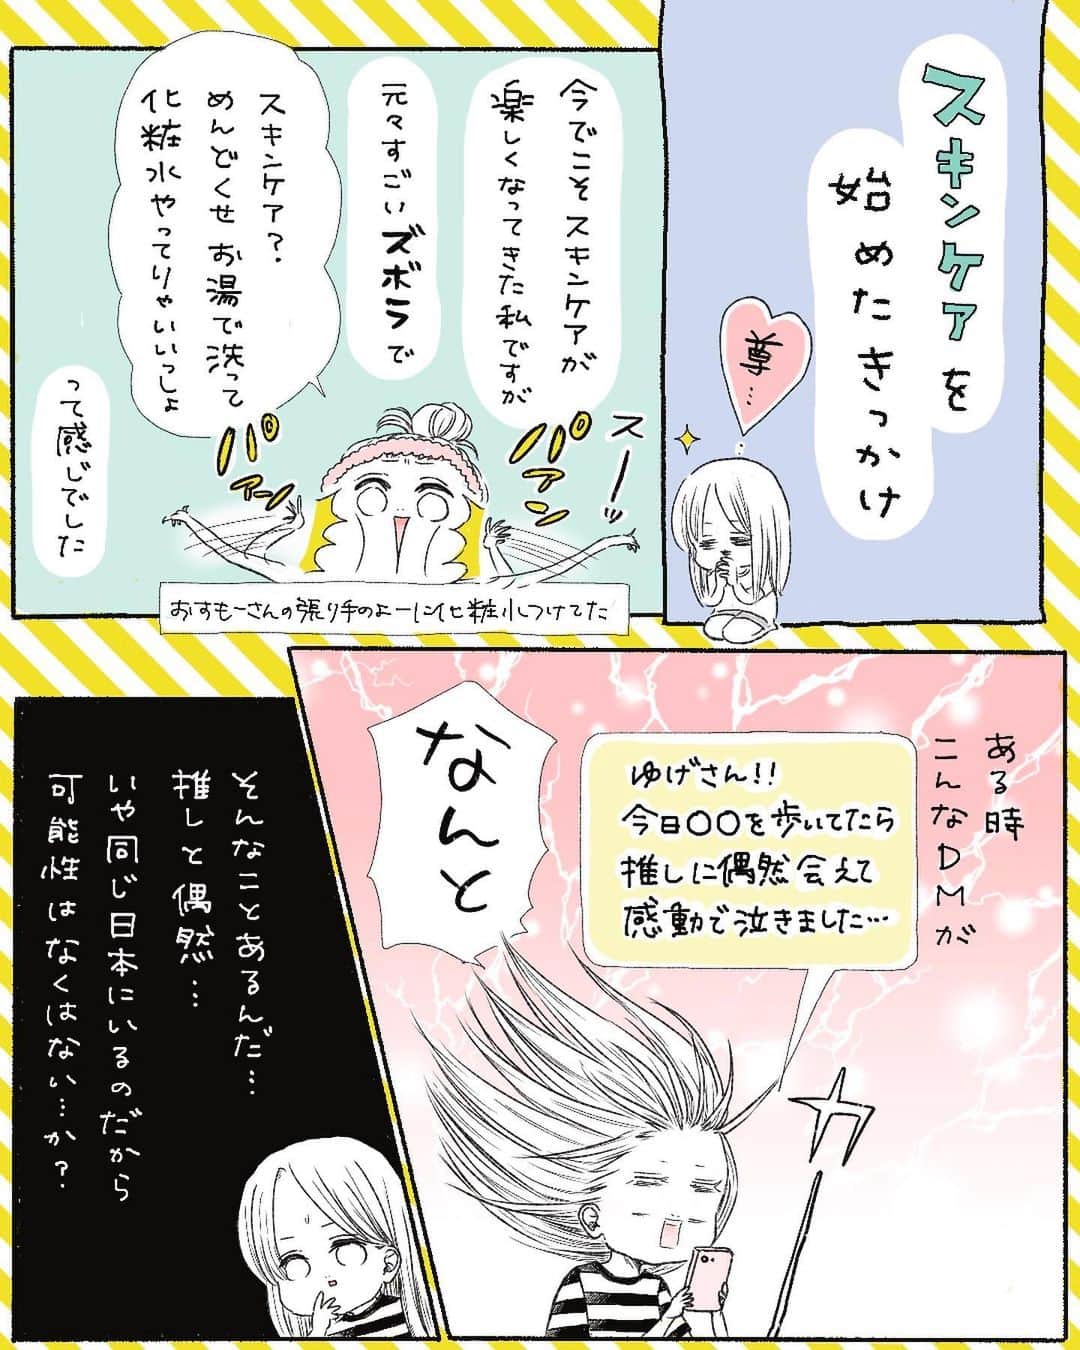 スキンケアを
始めたきっかけ
尊…
今でこそスキンケアが
楽しくなってきた私ですが
元々すごいズボラで
スキンケア?
めんどくせ お湯で洗って
化粧水やってりゃいいっしょ
って感じでした
スーッ
パァン
パァーン
おすもーさんの張り手のよーに化粧水つけてた
ある時
こんなDMが
ゆげさん!!
今日〇〇を歩いてたら
推しに偶然会えて
感動で泣きました…
なんと
カッ
そんなことあるんだ…
推しと偶然…
いや同じ日本にいるのだから
可能性はなくはない…か?